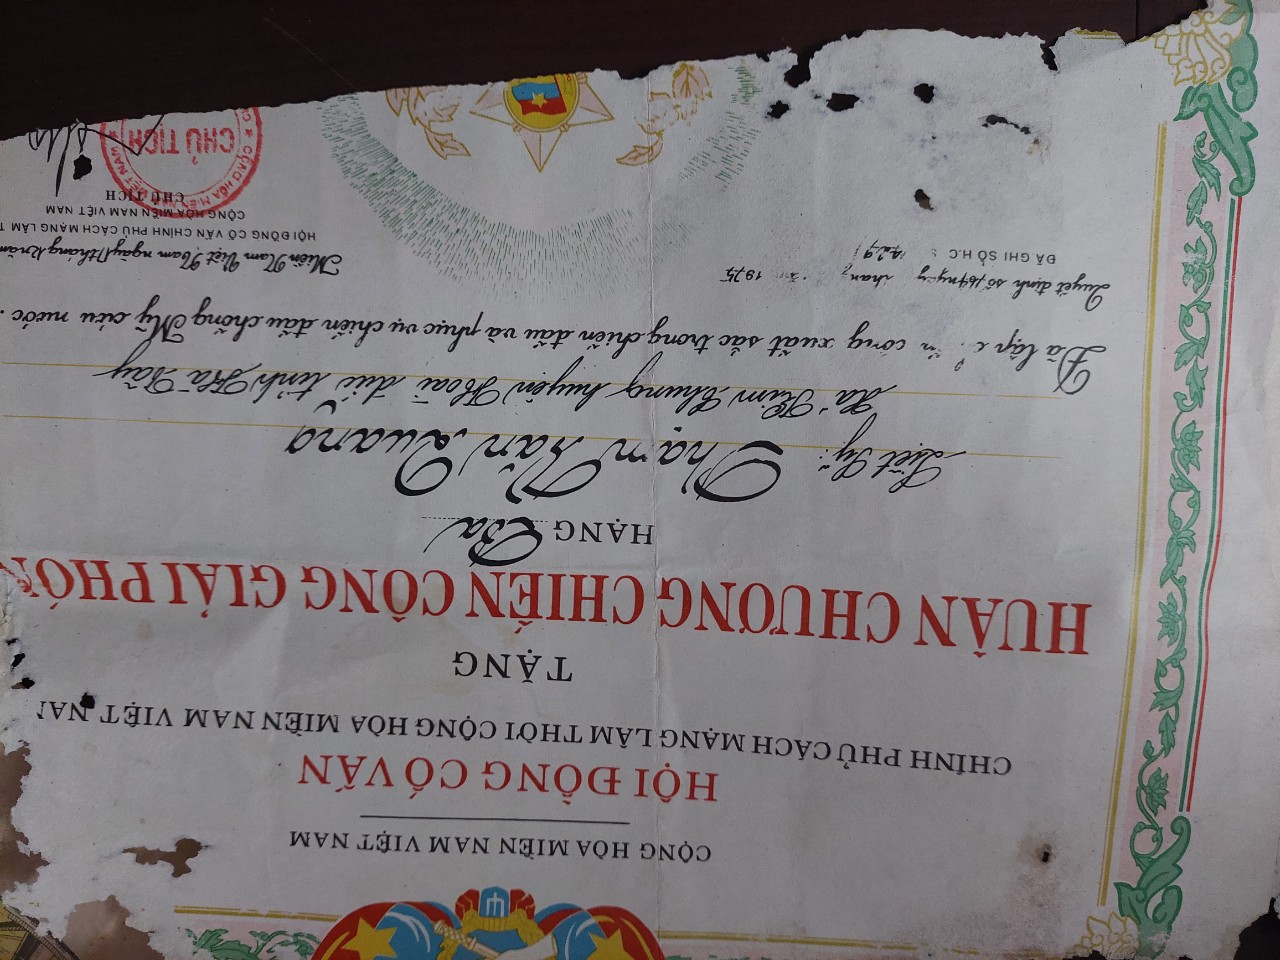 CỘNG HÒA MIỀN NAM VIỆT NAM
HỘI ĐỒNG CỐ VẤN
CHÍNH PHỦ CÁCH MẠNG LÂM THỜI CỘNG HÒA MIỀN NAM VIỆT NAM
TẶNG
HUÂN CHƯƠNG CHIẾN CÔNG GIẢI PHÓN
HẠNG Ba
Liệt Sỹ: Phạm Văn Quang
Xã Kim Chung huyện Hoài đức tỉnh Hà Tây
Đã lập công xuất sắc trong chiến đấu và phục vụ chiến đấu chống Mỹ cứu nước.
Quyết định số 164 ngày 1975
ĐÃ GHI SỔ H.C 429
Miền Nam Việt Nam ngày 17 tháng 12 năm
HỘI ĐỒNG CỐ VẤN CHÍNH PHỦ CÁCH MẠNG LÂM T
CỘNG HÒA MIỀN NAM VIỆT NAM
CHỦ TỊCH
CỘNG HÒA MIỀN NAM VIỆT NAM
CHỦ TỊCH